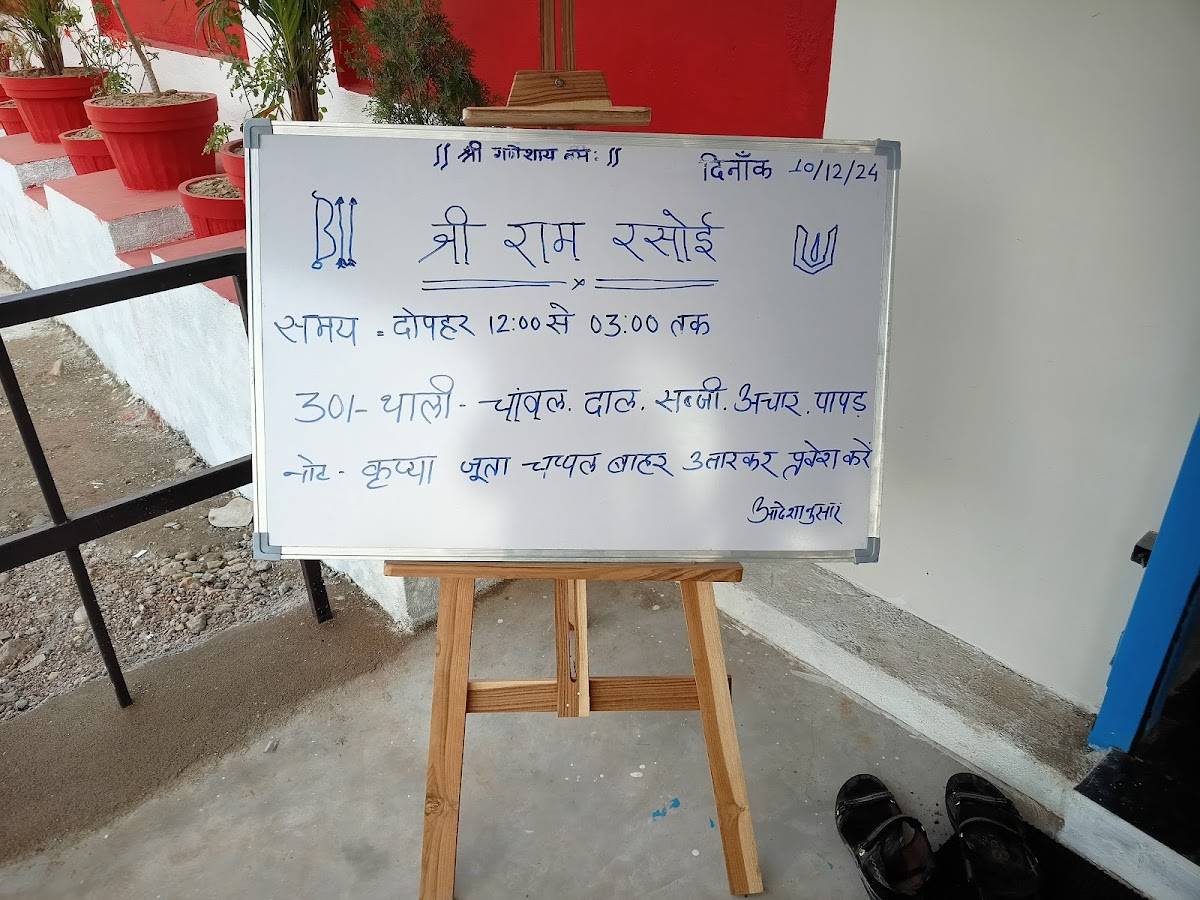 || श्री गणेशाय नमः ||
दिनाँक 10/12/24
श्री राम रसोई
समय = दोपहर 12:00 से 03:00 तक
30/- थाली - चांवल. दाल. सब्जी. अचार. पापड़
नोट - कृप्या जूता चप्पल बाहर उतारकर प्रवेश करें
आदेशानुसार